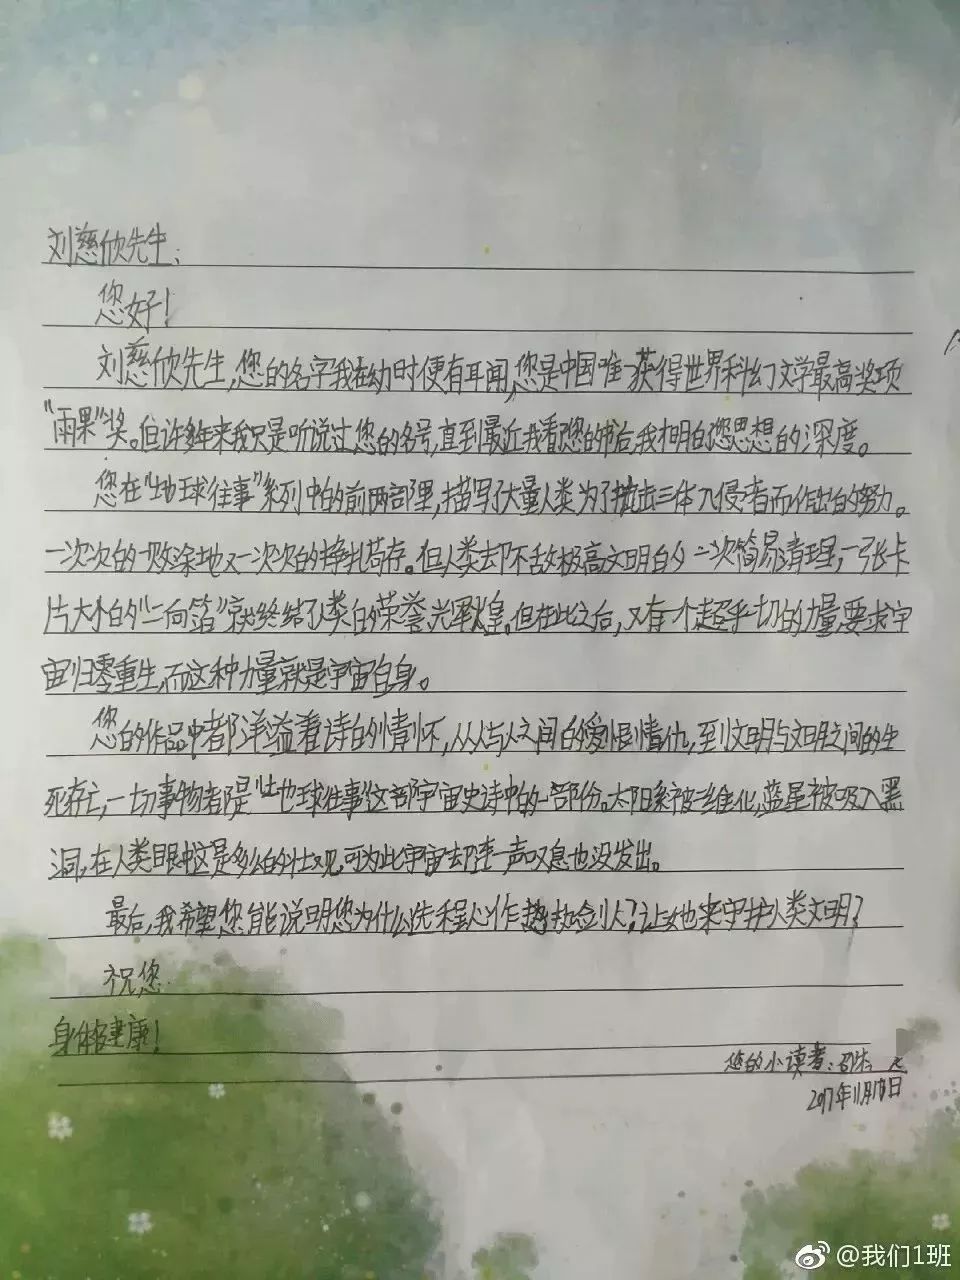 刘慈欣先生:
您好!
刘慈欣先生,您的名字我在幼时便有耳闻,您是中国唯一获得世界科幻文学最高奖项
"雨果"奖。但许多年来我只是听说过您的名号,直到最近我看您的书后,我才明白您思想的深度。
您在"地球往事"系列中的前两部里,描写了大量人类为了抗击三体入侵者而作出的努力。
一次次的一败涂地又一次次的挣扎苟存。但人类却不敌极高文明的一次简易清理,一张卡
片大小的"二向箔"就终结了人类的荣誉光辉煌。但在此之后,又有一个超乎一切的力量要求宇
宙归零重生,而这种力量就是宇宙自身。
您的作品中都洋溢着诗的情怀,从人与人之间的爱恨情仇,到文明与文明之间的生
死存亡,一切事物都是"地球往事"这部宇宙史诗中的一部份。太阳系被二维化,蓝星被吸入黑
洞,在人类眼中这是多么的壮观,可为此宇宙却连一声叹息也没发出。
最后,我希望您能说明您为什么选程心作执剑人?让她来守护人类文明?
祝您
身体健康!
您的小读者:
2017年11月
@我们1班